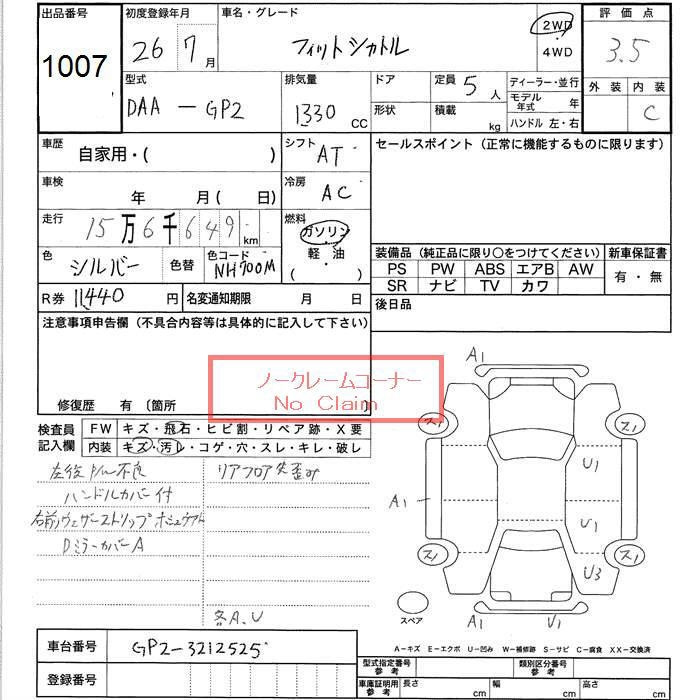 出品番号 初度登録年月 車名・グレード 評価点
1007 26 7月 フィットシャトル 2WD 4WD 3.5
型式 排気量 ドア 定員 ディーラー・並行 外装 内装
DAA-GP2 1330 CC 形状 5人 積載 kg モデル年式 年 ハンドル 左・右 C
車歴 自家用・( ) シフト AT セールスポイント(正常に機能するものに限ります)
車検 年 月( 日) 冷房 AC
走行 15万6千649km 燃料 ガソリン 軽油 ( )
色 シルバー 色替 色コード NH700M 装備品(純正品に限り○をつけてください) 新車保証書
PS PW ABS エアB AW 有・無
SR ナビ TV カワ
R券 11440円 名変通知期限 月 日 後日品
注意事項申告欄(不具合内容等は具体的に記入して下さい)
ノークレームコーナー
No Claim
修復歴 有 (箇所
検査員記入欄 FW キズ・飛石・ヒビ割・リペア跡・X要
内装 キズ・汚レ・コゲ・穴・スレ・キレ・破レ
左後P/W不良 リアフロア
ハンドルカバー付
右前ウェザーストリップ
Dミラーカバー A
各A.U
A1
ス1 ス1
U1
A1
U1
ス1 ス1
U3
スペア A1 U1
A-キズ E-エクボ U-凹み W-補修跡 S-サビ C-腐食 XX-交換済
車台番号 GP2-3212525
登録番号
型式指定番号 参考 類別区分番号 参考
車庫証明用 参考 長さ cm 幅 cm 高さ cm